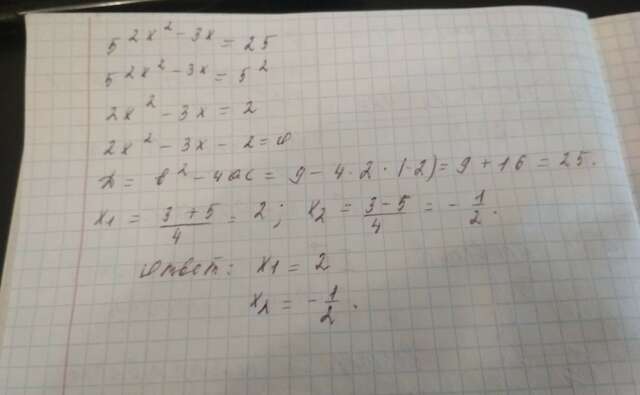 5^{2x^2-3x} = 25
5^{2x^2-3x} = 5^2
2x^2 - 3x = 2
2x^2 - 3x - 2 = 0
D = b^2 - 4ac = 9 - 4 · 2 · (-2) = 9 + 16 = 25.
x_1 = \frac{3+5}{4} = 2; x_2 = \frac{3-5}{4} = -\frac{1}{2}.
Ответ: x_1 = 2
x_2 = -\frac{1}{2}.